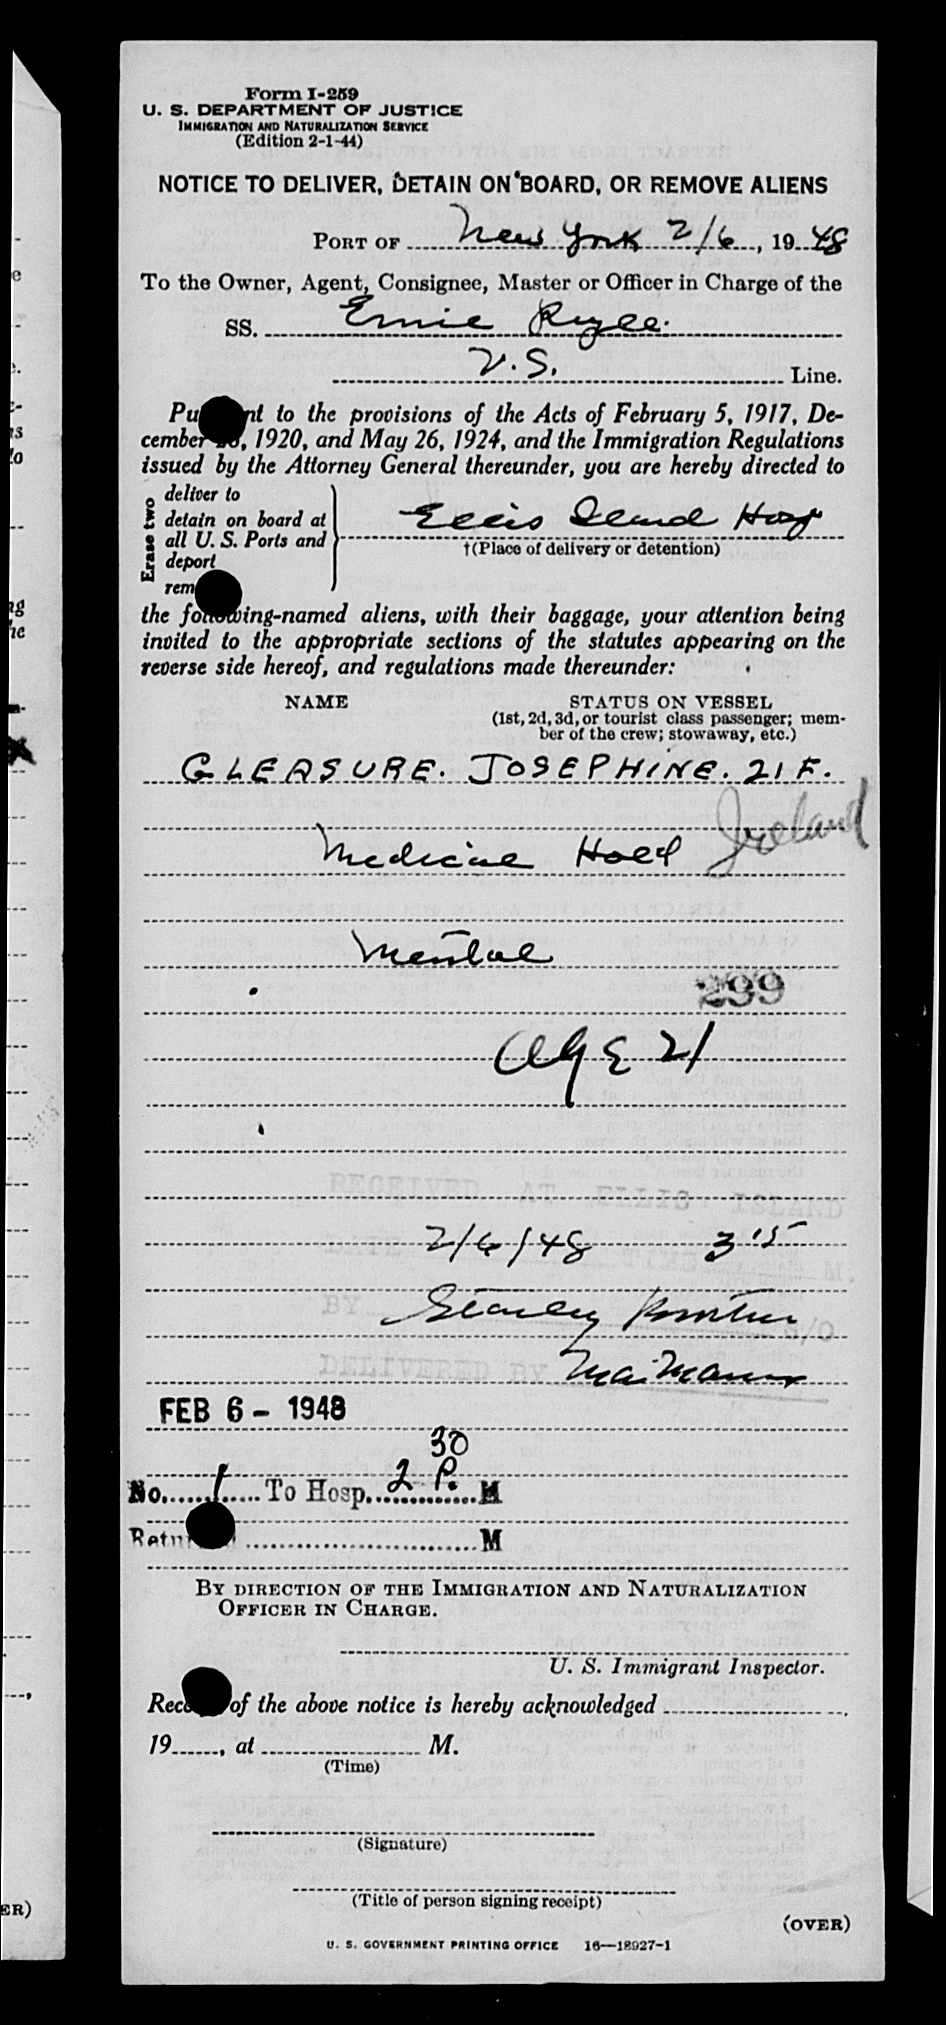 Form I-259
U. S. DEPARTMENT OF JUSTICE
IMMIGRATION AND NATURALIZATION SERVICE
(Edition 2-1-44)
NOTICE TO DELIVER, DETAIN ON BOARD, OR REMOVE ALIENS
PORT OF New York 2/6, 1948
To the Owner, Agent, Consignee, Master or Officer in Charge of the
SS. Ernie
V.S. Line.
Pu nt to the provisions of the Acts of February 5, 1917, De-
cember , 1920, and May 26, 1924, and the Immigration Regulations
issued by the Attorney General thereunder, you are hereby directed to
Erase two
deliver to
detain on board at
all U. S. Ports and
deport
rem
Ellis Island Hosp
†(Place of delivery or detention)
the following-named aliens, with their baggage, your attention being
invited to the appropriate sections of the statutes appearing on the
reverse side hereof, and regulations made thereunder:
NAME STATUS ON VESSEL
(1st, 2d, 3d, or tourist class passenger; mem-
ber of the crew; stowaway, etc.)
GLEASURE. JOSEPHINE. 21 F.
Ireland
Medical Hold
Mental
299
Age 21
RECEIVED AT ELLIS ISLAND
DATE 2/6/48 TIME 3 15 M.
BY Stanley
DELIVERED BY
FEB 6 - 1948
30
No. 1 To Hosp. 2 P. M
Retu M
BY DIRECTION OF THE IMMIGRATION AND NATURALIZATION
OFFICER IN CHARGE.
U. S. Immigrant Inspector.
Rec of the above notice is hereby acknowledged
19 , at M.
(Time)
(Signature)
(Title of person signing receipt)
(OVER)
U. S. GOVERNMENT PRINTING OFFICE 16—18927-1